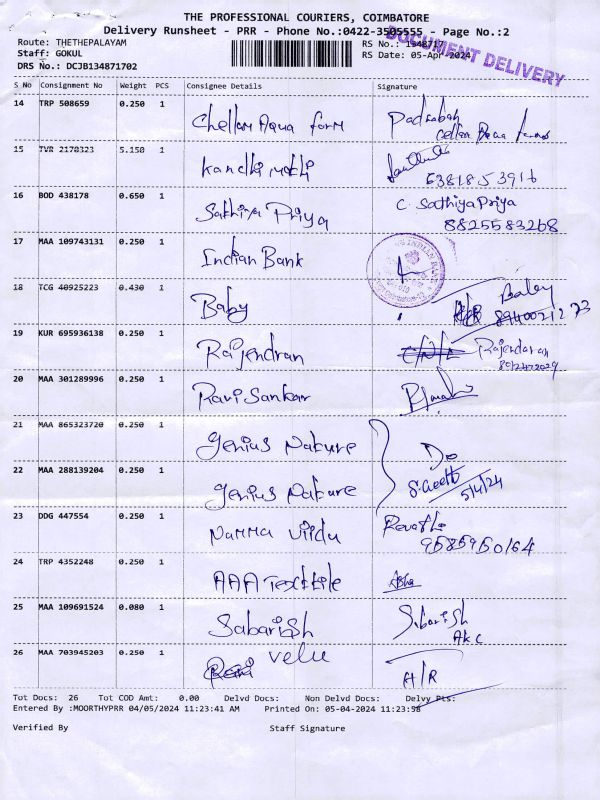 THE PROFESSIONAL COURIERS, COIMBATORE
Delivery Runsheet - PRR - Phone No.:0422-3505555 - Page No.:2
Route: THETHEPALAYAM
RS No.: 1348717
Staff: GOKUL
RS Date: 05-Apr-2024
DRS No.: DCJB134871702
DOCUMENT DELIVERY
S No Consignment No Weight PCS Consignee Details Signature
14 TRP 508659 0.250 1 Chellam Aqua form
15 TVR 2170323 5.150 1
6381853916
16 BOD 438178 0.650 1 Sathiya Priya C. Sathiya Priya
8825583268
17 MAA 109743131 0.250 1 Indian Bank INDIAN BANK
18 TCG 40925223 0.430 1 Baby Baby
8940021273
19 KUR 695936138 0.250 1 Rajendran Rajendaran
20 MAA 301289996 0.250 1 Ravi Sankar
21 MAA 865323720 0.250 1 Genius Nature Do
22 MAA 288139204 0.250 1 Genius Nature S. Geetha
5/4/24
23 DDG 447554 0.250 1 Namma Viidu Revathi
9585950164
24 TRP 4352248 0.250 1 AAA Textile Asha
25 MAA 109691524 0.080 1 Sabarish Sabarish
AKC
26 MAA 703945203 0.250 1 Velu A/R
Tot Docs: 26 Tot COD Amt: 0.00 Delvd Docs: Non Delvd Docs: Delvy Pts:
Entered By :MOORTHYPRR 04/05/2024 11:23:41 AM Printed On: 05-04-2024 11:23:58
Verified By Staff Signature